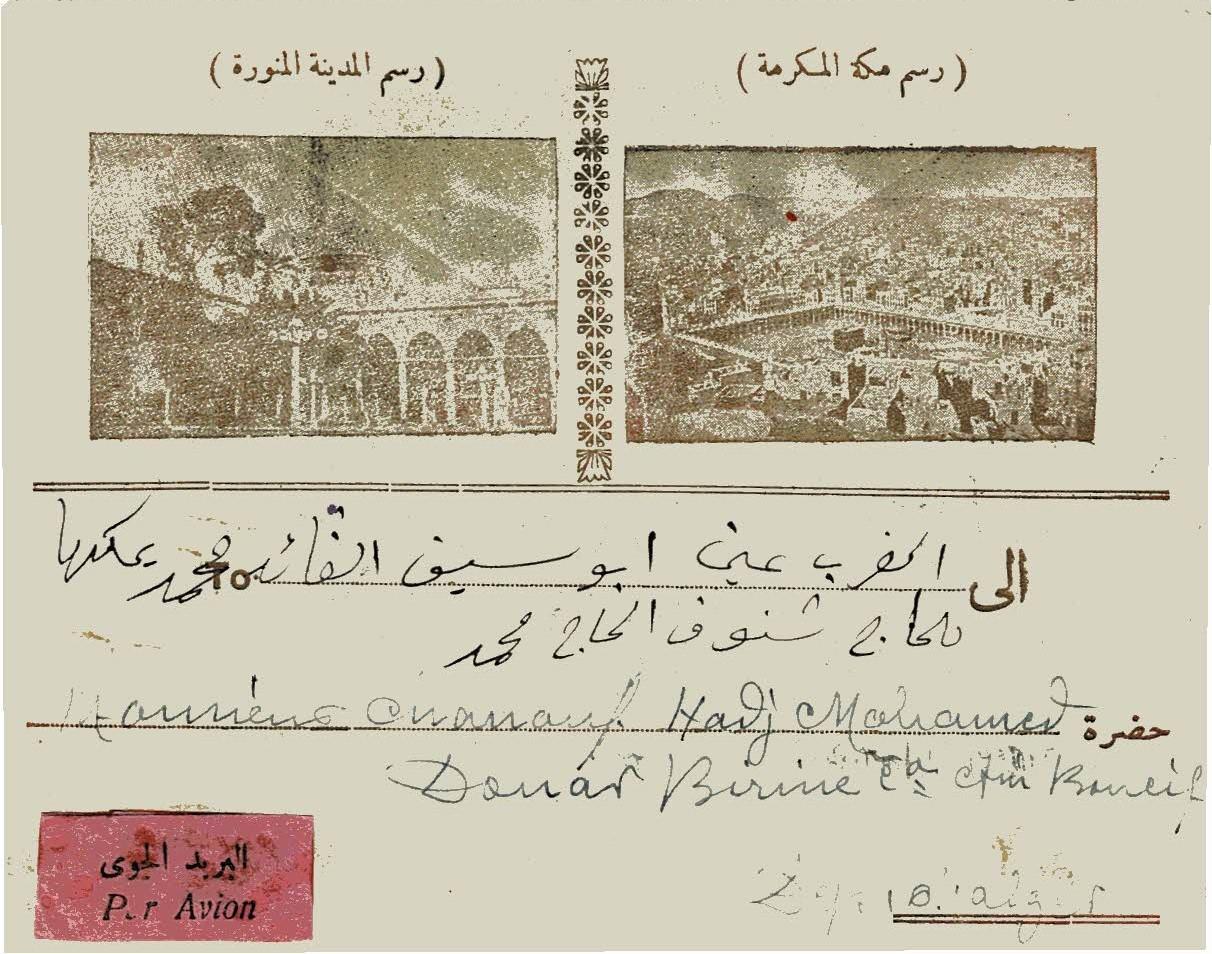 ( رسم مكة المكرمة )
( رسم المدينة المنورة )
الى To
عين ابو سيف القائد محمد
للحاج شنوف الحاج محمد
حضرة
Chanouf Hadj Mohamed
Douar Birine Ain Boucif
d'alger
البريد الجوى
Par Avion